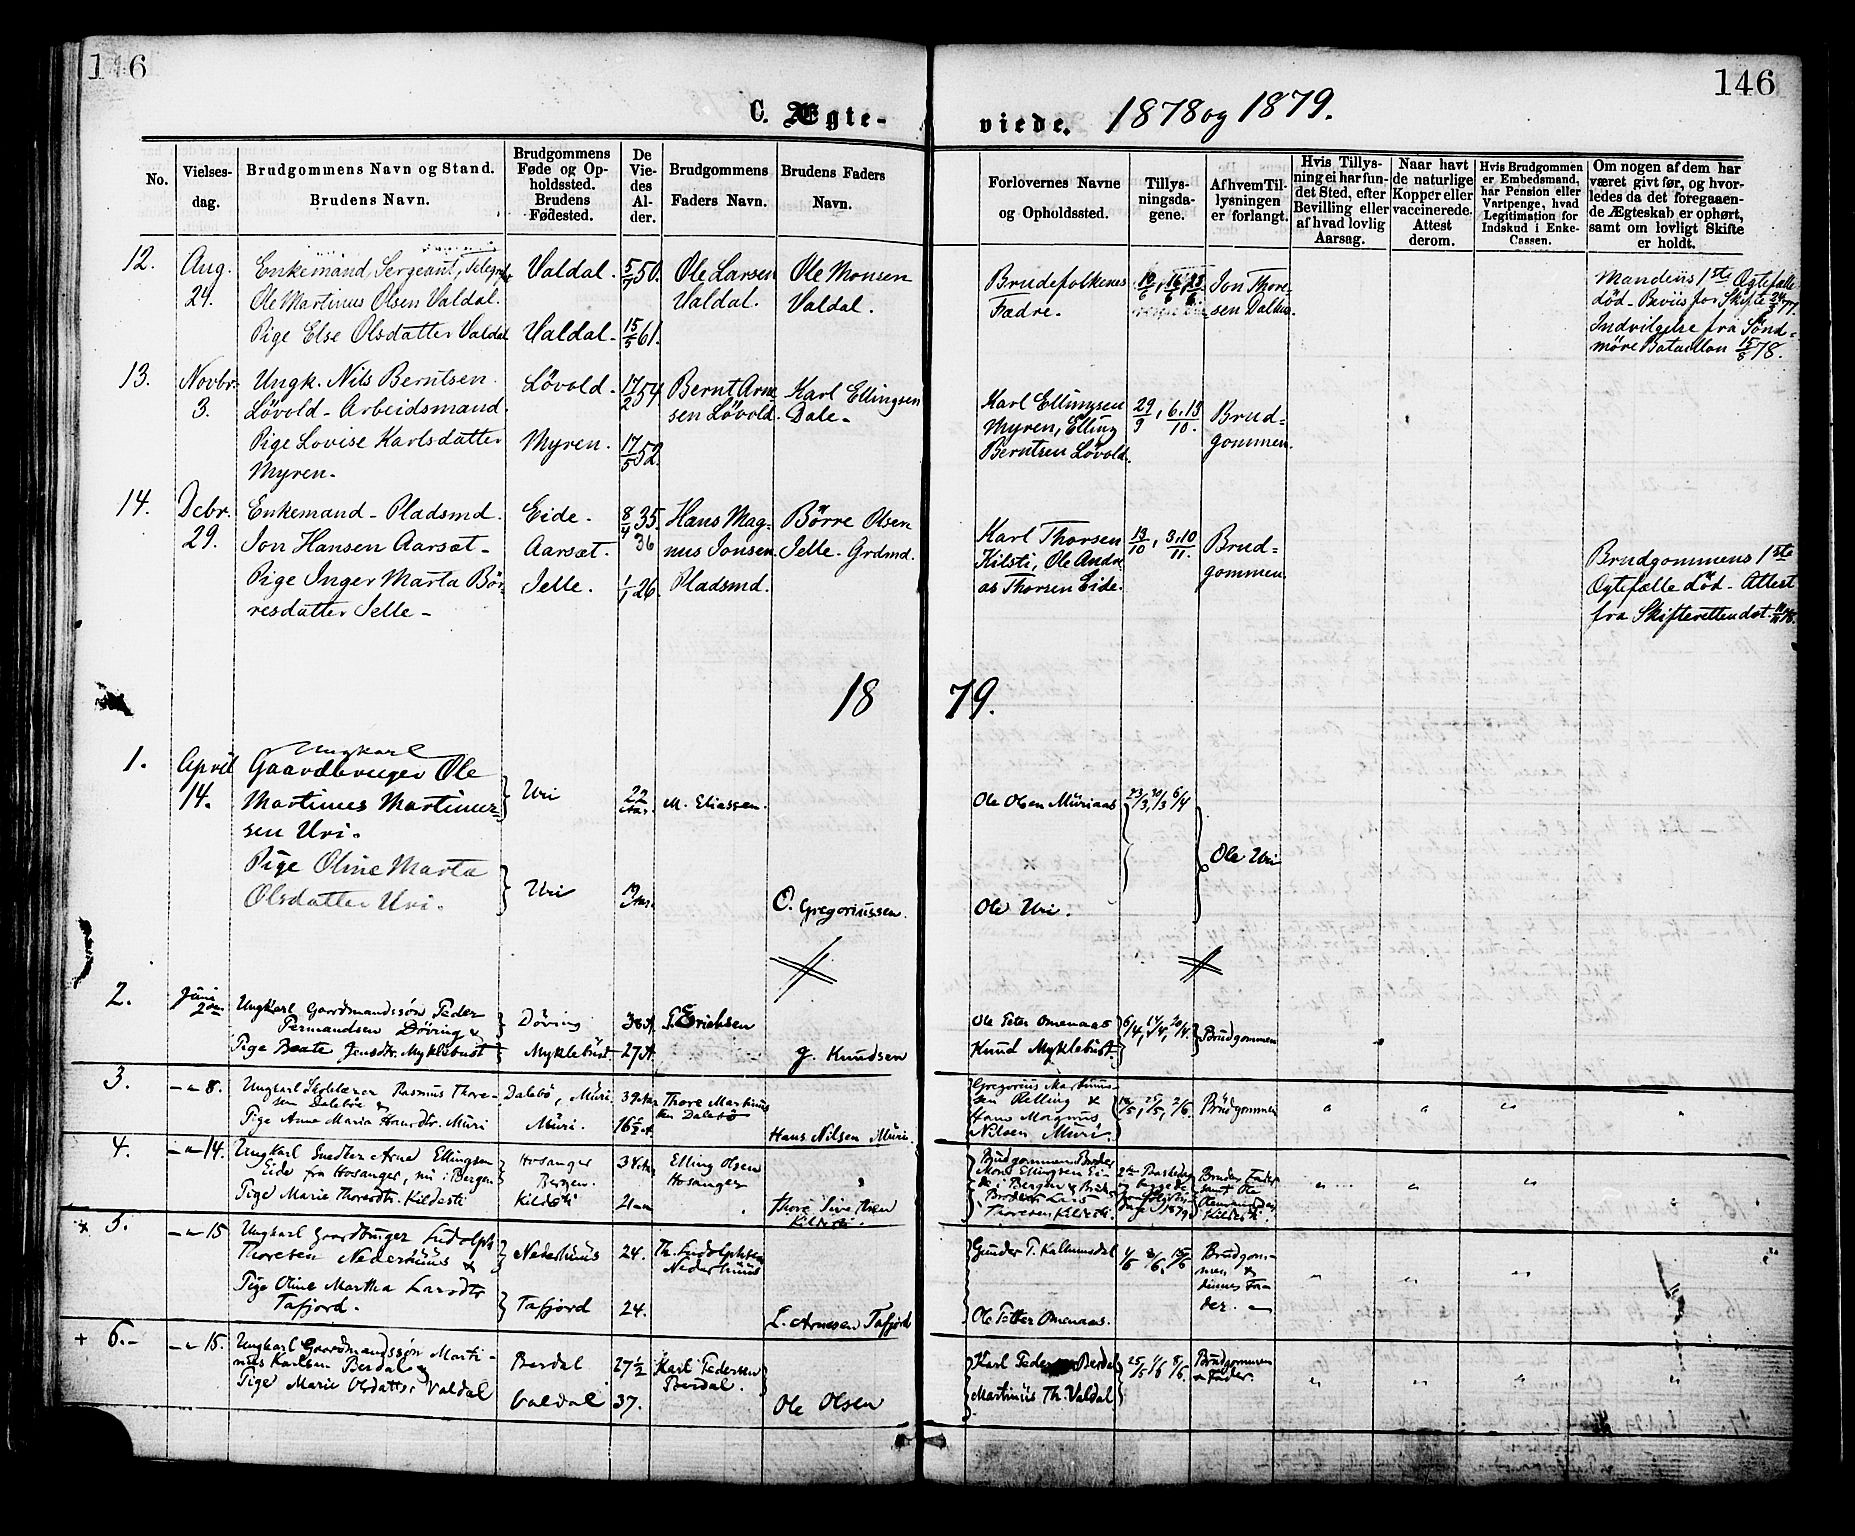 146
146
C. Ægte-
viede.
1878 og 1879.
No.
Vielses-
dag.
Brudgommens Navn og Stand.
Brudens Navn.
Brudgommens
Føde og Op-
holdssted.
Brudens
Fødested.
De
Vie-
des
Al-
der.
Brudgommens
Faders Navn.
Brudens Faders
Navn.
Forlovernes Navne
og Opholdssted.
Tillys-
ningsda-
gene.
Af hvem Til-
lysningen
er forlangt.
Hvis Tillys-
ning ei har fun-
det Sted, efter
Bevilling eller
af hvad lovlig
Aarsag.
Naar havt
de naturlige
Kopper eller
vaccinerede.
Attest
derom.
Hvis Brudgommen
er Embedsmand,
har Pension eller
Vartpenge, hvad
Legitimation for
Indskud i Enke-
Cassen.
Om nogen af dem har
været givt før, og hvor-
ledes da det foregaaen-
de Ægteskab er ophørt,
samt om lovligt Skifte
er holdt.
12.
Aug.
24.
Enkemand, Sergeant,
Ole Martinus Olsen Valdal.
Pige Else Olsdatter Valdal
Valdal.
Valdal.
5/7 50.
15/5 61.
Ole Larsen
Valdal.
Ole Monsen
Valdal.
Brudefolkenes
Fædre.
Jon Thore-
sen Dalhus.
Mandens 1ste Ægtefælle
død - Beviis for Skifte
Indvilgelse fra Sönd-
möre Bataillon 15/8 78.
13.
Novbr.
3.
Ungk. Nils Berntsen
Lövold - Arbeidsmand.
Pige Lovise Karlsdatter
Myren.
Lövold.
Myren.
17/2 54.
17/5 52.
Bernt Arne
sen Lövold.
Karl Ellingsen
Dale.
Karl Ellingsen
Myren, Elling
Berntsen Lövold.
29/9, 6.13/10.
Brud-
gommen.
14.
Dcbr.
29.
Enkemand - Pladsmd.
Jon Hansen Aarsæt -
Pige Inger Marta Bör-
resdatter Selle -
Eide.
Aarsæt.
Selle.
8/4 35.
36
1/1 26.
Hans Mag-
nus Jonsen
Pladsmd.
Börre Olsen
Selle. Grdmd.
Karl Thorsen
Kilsti, Ole Andre
as Thorsen Eide.
13/10, 3.10/11.
Brud-
gommen.
Brudgommens 1ste
Ægtefælle död - Attest
fra Skifteretten dat.
18
79.
1.
April
14.
Ungkarl
Gaardbruger Ole
Martinus Martinus-
sen Uri.
Pige Oline Marta
Olsdatter Uri.
Uri
Uri
22
Aar.
19 Aar.
M. Eliassen.
O. Gregoriussen.
Ole Olsen Muriaas
Ole Uri.
Ole Uri
2.
Juni
Ungkarl Gaardmandssön Peder
Permandsen Döving &
Pige Beate Jensdtr. Myklebust
Döving
Myklebust
27 A.
P. Erichsen
J. Knudsen
Ole Peter Omenaas
Knud Myklebust.
6/4, 14/4, 20/4
Brudgommen
3.
- " - 8.
Ungkarl Skolelærer Rasmus Thore-
sen Dalebö &
Pige Anne Maria Hansdtr. Muri
Dalebö, Muri
Muri.
39 Aar
Thore Martinus
sen Dalebö
Hans Nilsen Muri.
Gregorius Martinus-
sen Relling &
Hans Magnus
Nilsen Muri.
18/5, 25/5, 2/6.
Brudgommen
4.
- " - 14.
Ungkarl Snedker Arne Ellingsen
Eide fra Hosanger, nu i Bergen
Pige Marie Thoresdtr. Kildesti
Hosanger
Bergen.
Kildesti
21 -
Elling Olsen
Hosanger
Thore Sivertsen
Kildesti.
Brudgommens Broder
Mons Ellingsen Ei-
de i Bergen & Brudens
Broder Lars
Thoresen Kildesti.
Brudens Fader
samt Ole
Kildesti.
× 5.
- " - 15
Ungkarl Gaardbruger Ludolph
Thoresen Nederhuus &
Pige Oline Martha Larsdtr
Tafjord.
Nederhuus
Tafjord
24.
24.
Th. Ludolphsen
Nederhuus
L. Arnesen Tafjord
Gunder T. Kalhusdal
Ole Petter Omenaas.
1/6 8/6. 15/6
Brudgom-
men &
dennes Fa-
der. -
+ 6.-
- " - 15.
Ungkarl Gaardmandssön Marti-
nus Karlsen Berdal &
Pige Marie Olsdatter Valdal
Berdal
Valdal
27 1/2
37.
Karl Pedersen
Berdal.
Ole Olsen
Karl Pedersen Berdal
Martinus Th. Valdal
25/5 1/6 8/6.
Brudgommen
& Fader.